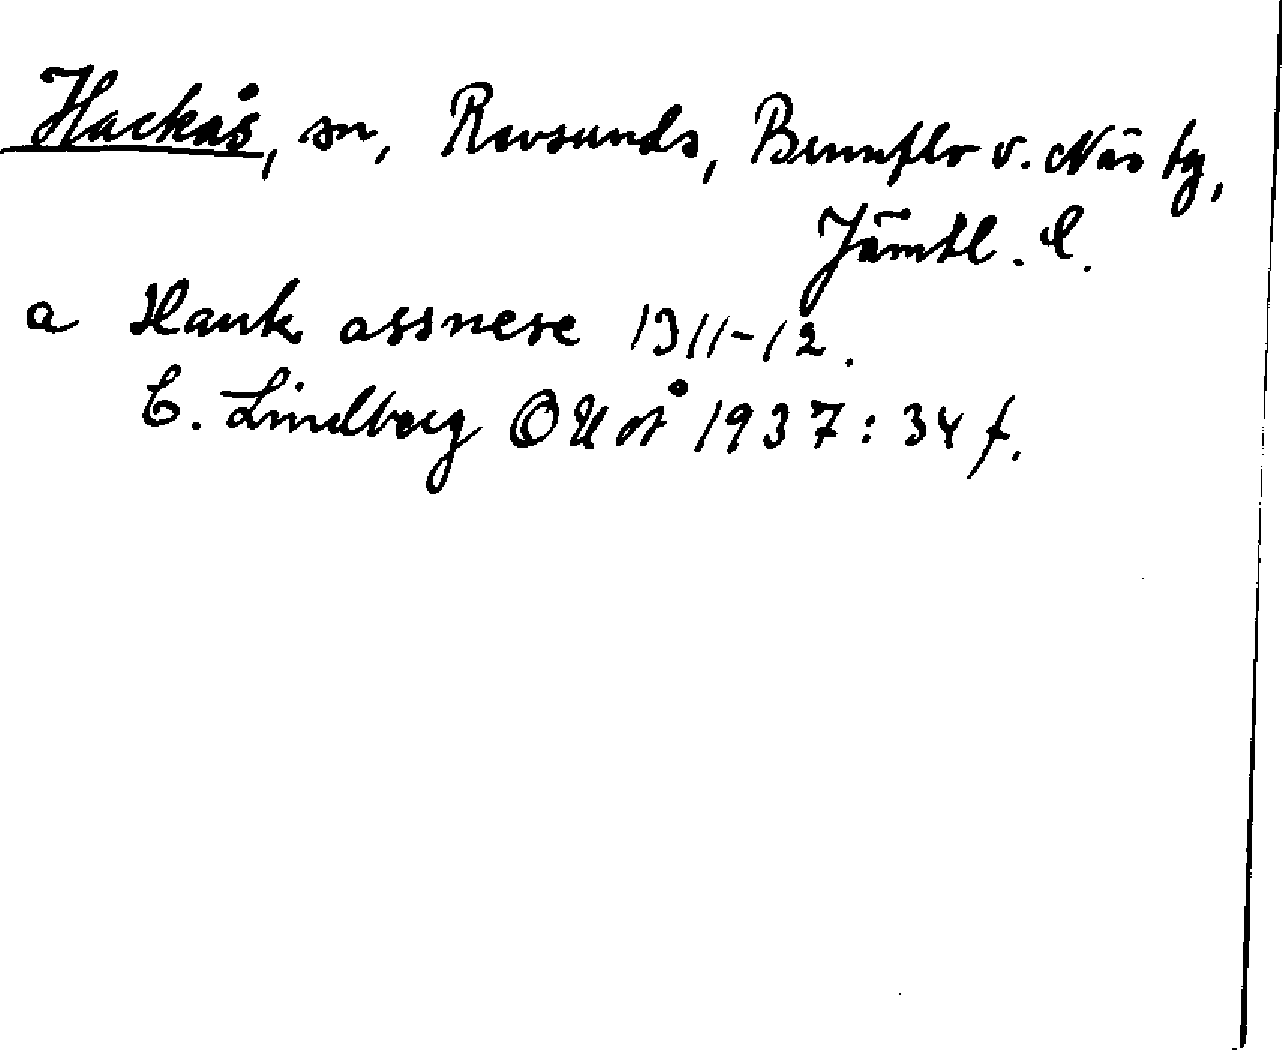 Hackås, sn, Revsunds, Brunflo o. Näs tg,
Jämtl. l.
a Hauk assnese 1311-12.
C. Lindberg OUoÅ 1937: 34 f.